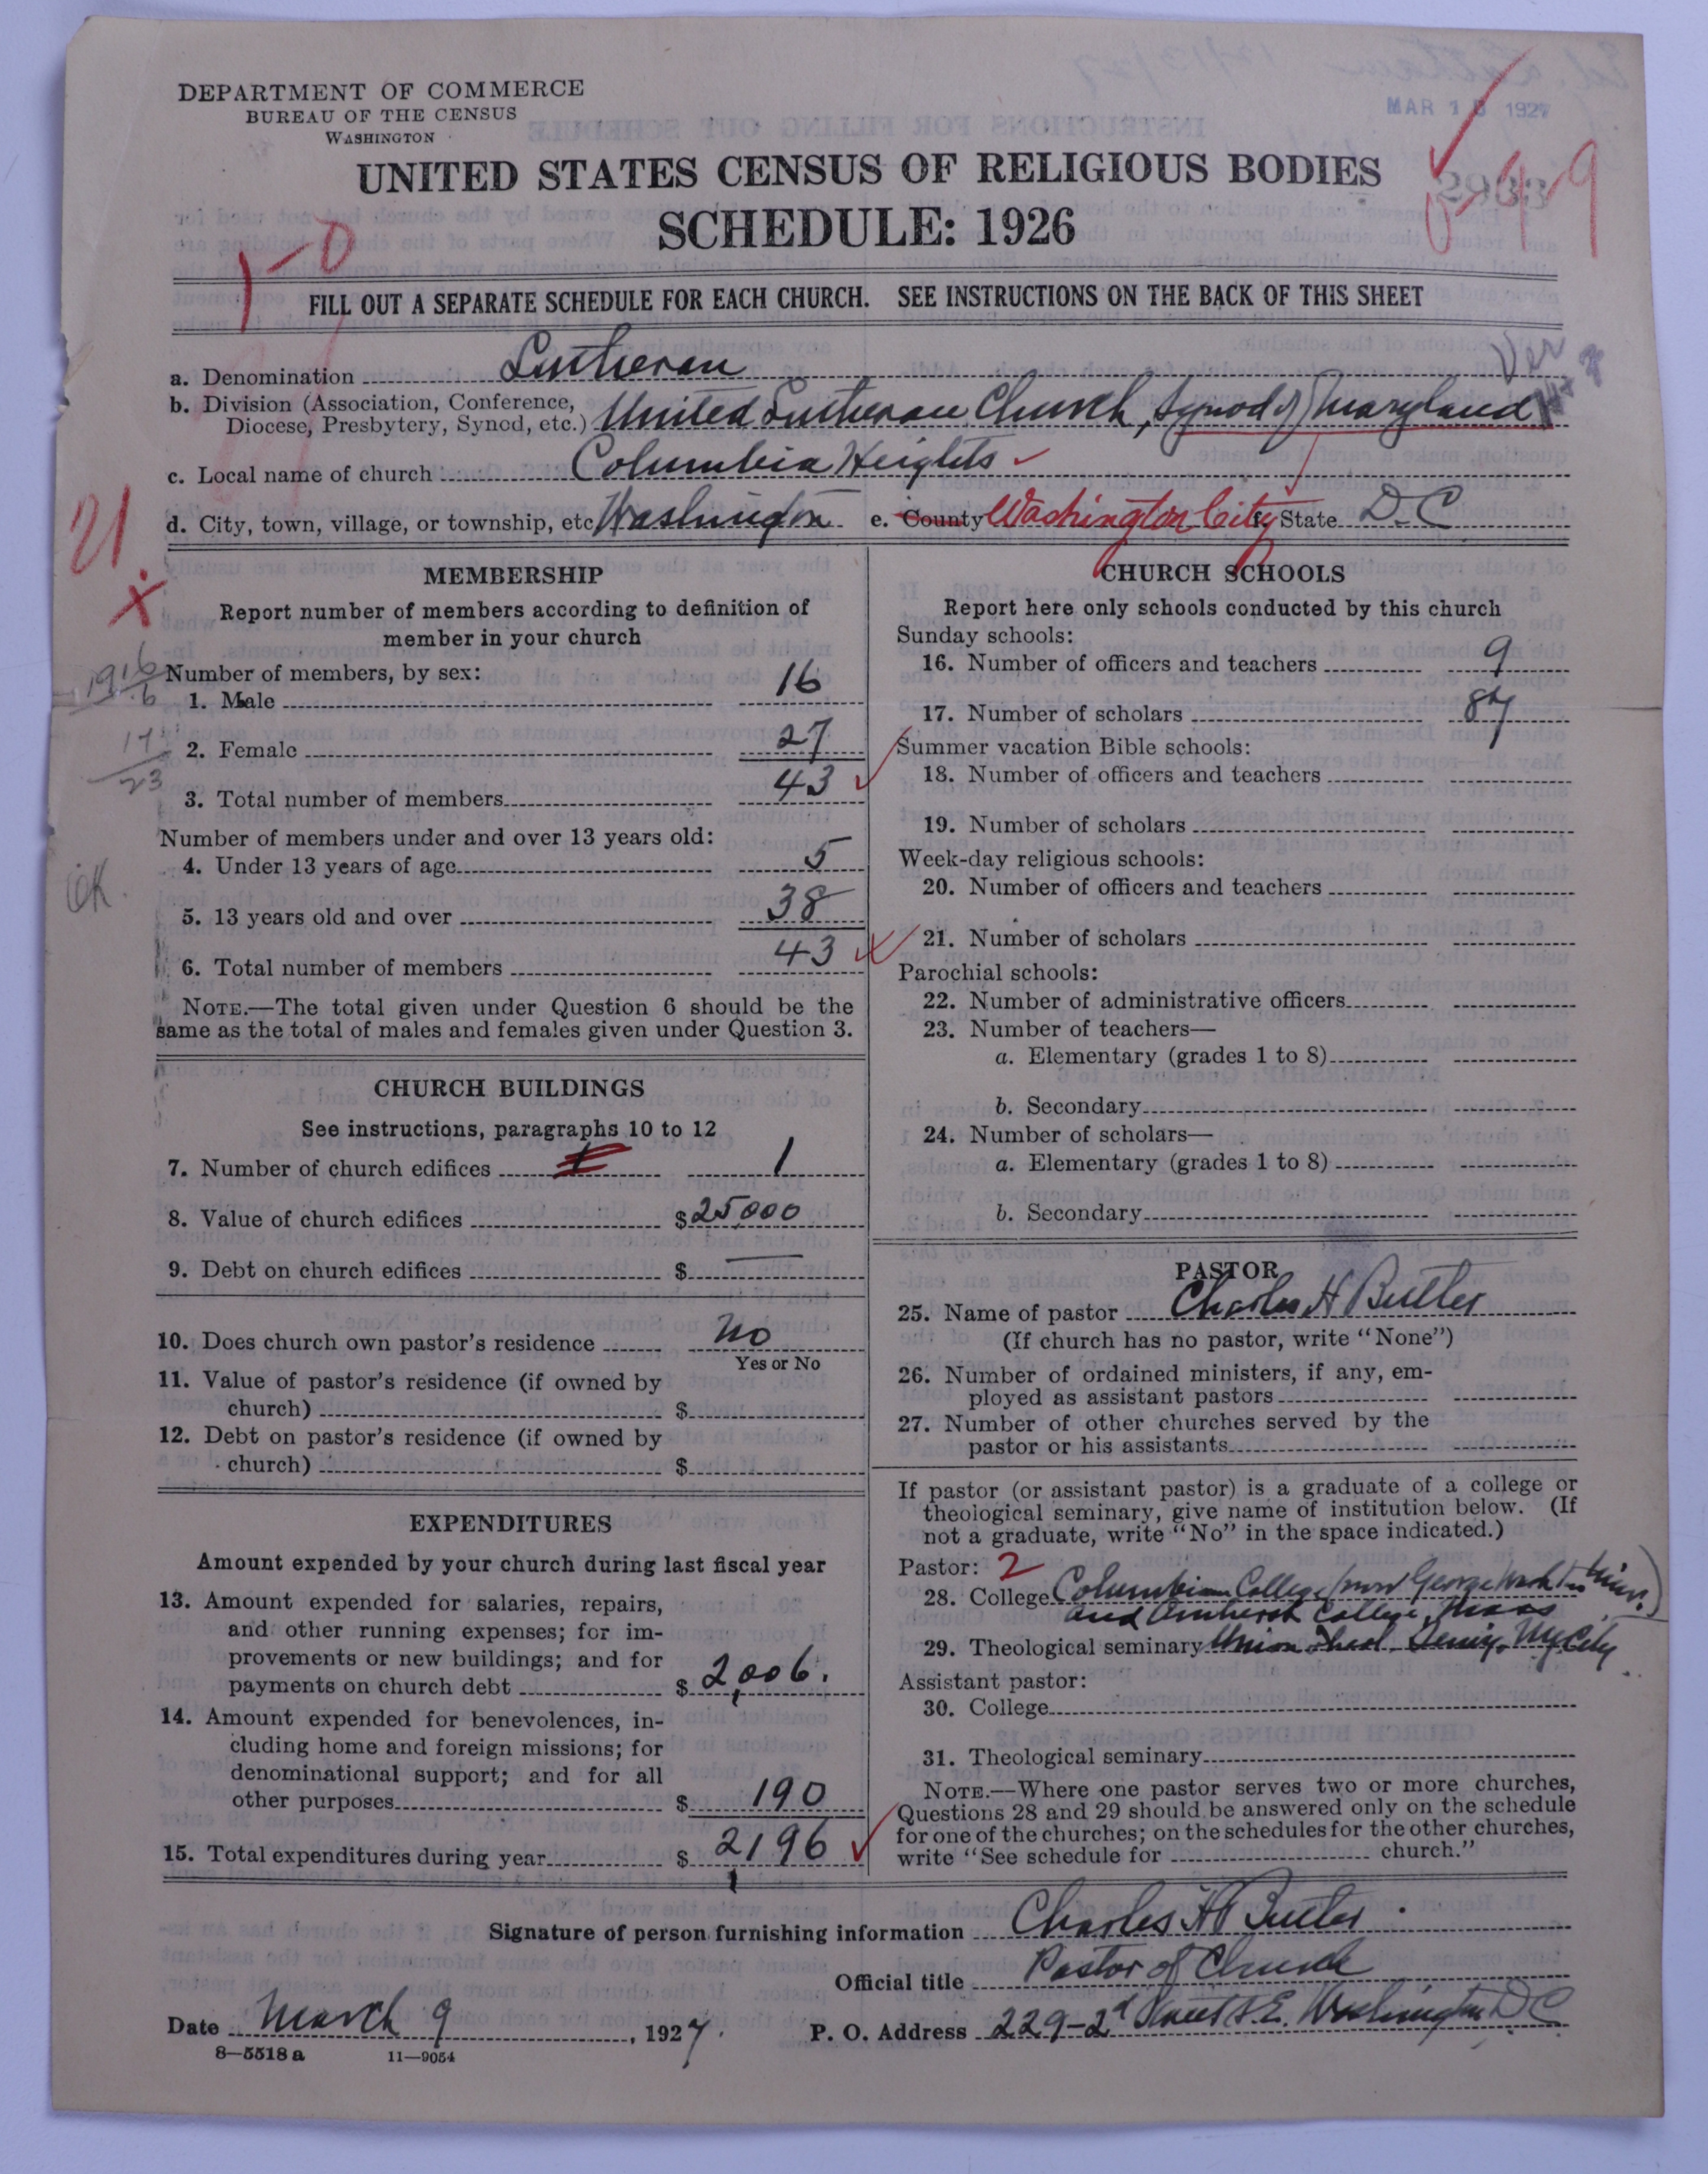 DEPARTMENT OF COMMERCE
BUREAU OF THE CENSUS
WASHINGTON
MAR 1 1927
UNITED STATES CENSUS OF RELIGIOUS BODIES
SCHEDULE: 1926
1-0
FILL OUT A SEPARATE SCHEDULE FOR EACH CHURCH. SEE INSTRUCTIONS ON THE BACK OF THIS SHEET
a. Denomination Lutheran
Ver
b. Division (Association, Conference, Diocese, Presbytery, Synod, etc.) United Lutheran Church, Synod of Maryland
c. Local name of church Columbia Heights
d. City, town, village, or township, etc Washington e. County Washington City f. State D.C
21
X
MEMBERSHIP
Report number of members according to definition of
member in your church
Number of members, by sex:
1. Male 16
2. Female 27
3. Total number of members 43
Number of members under and over 13 years old:
4. Under 13 years of age 5
OK.
5. 13 years old and over 38
6. Total number of members 43
NOTE.—The total given under Question 6 should be the
same as the total of males and females given under Question 3.
CHURCH BUILDINGS
See instructions, paragraphs 10 to 12
7. Number of church edifices 1 1
8. Value of church edifices $25,000
9. Debt on church edifices $ —
10. Does church own pastor's residence No
Yes or No
11. Value of pastor's residence (if owned by
church) $
12. Debt on pastor's residence (if owned by
church) $
EXPENDITURES
Amount expended by your church during last fiscal year
13. Amount expended for salaries, repairs,
and other running expenses; for im-
provements or new buildings; and for
payments on church debt $ 2,006.
14. Amount expended for benevolences, in-
cluding home and foreign missions; for
denominational support; and for all
other purposes $ 190
15. Total expenditures during year $ 2,196
CHURCH SCHOOLS
Report here only schools conducted by this church
Sunday schools:
16. Number of officers and teachers 9
17. Number of scholars 87
Summer vacation Bible schools:
18. Number of officers and teachers
19. Number of scholars
Week-day religious schools:
20. Number of officers and teachers
21. Number of scholars
Parochial schools:
22. Number of administrative officers
23. Number of teachers—
a. Elementary (grades 1 to 8)
b. Secondary
24. Number of scholars—
a. Elementary (grades 1 to 8)
b. Secondary
PASTOR
25. Name of pastor Charles H Butler
(If church has no pastor, write "None")
26. Number of ordained ministers, if any, em-
ployed as assistant pastors
27. Number of other churches served by the
pastor or his assistants
If pastor (or assistant pastor) is a graduate of a college or
theological seminary, give name of institution below. (If
not a graduate, write "No" in the space indicated.)
Pastor: 2
28. College Columbian College (now George Wash'tn Univ.)
and Amherst College, Mass
29. Theological seminary Union Theol. Semiy. NY City
Assistant pastor:
30. College
31. Theological seminary
NOTE.—Where one pastor serves two or more churches,
Questions 28 and 29 should be answered only on the schedule
for one of the churches; on the schedules for the other churches,
write "See schedule for church."
Signature of person furnishing information Charles H Butler
Official title Pastor of Church
Date March 9, 1927. P. O. Address 229-2d Street S.E. Washington DC
8—5518 a 11—9054